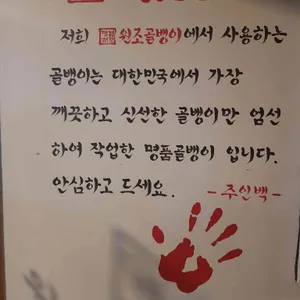 저희 원조골뱅이에서 사용하는
골뱅이는 대한민국에서 가장
깨끗하고 신선한 골뱅이만 엄선
하여 작업한 명품골뱅이 입니다.
안심하고 드세요.
-주인백-